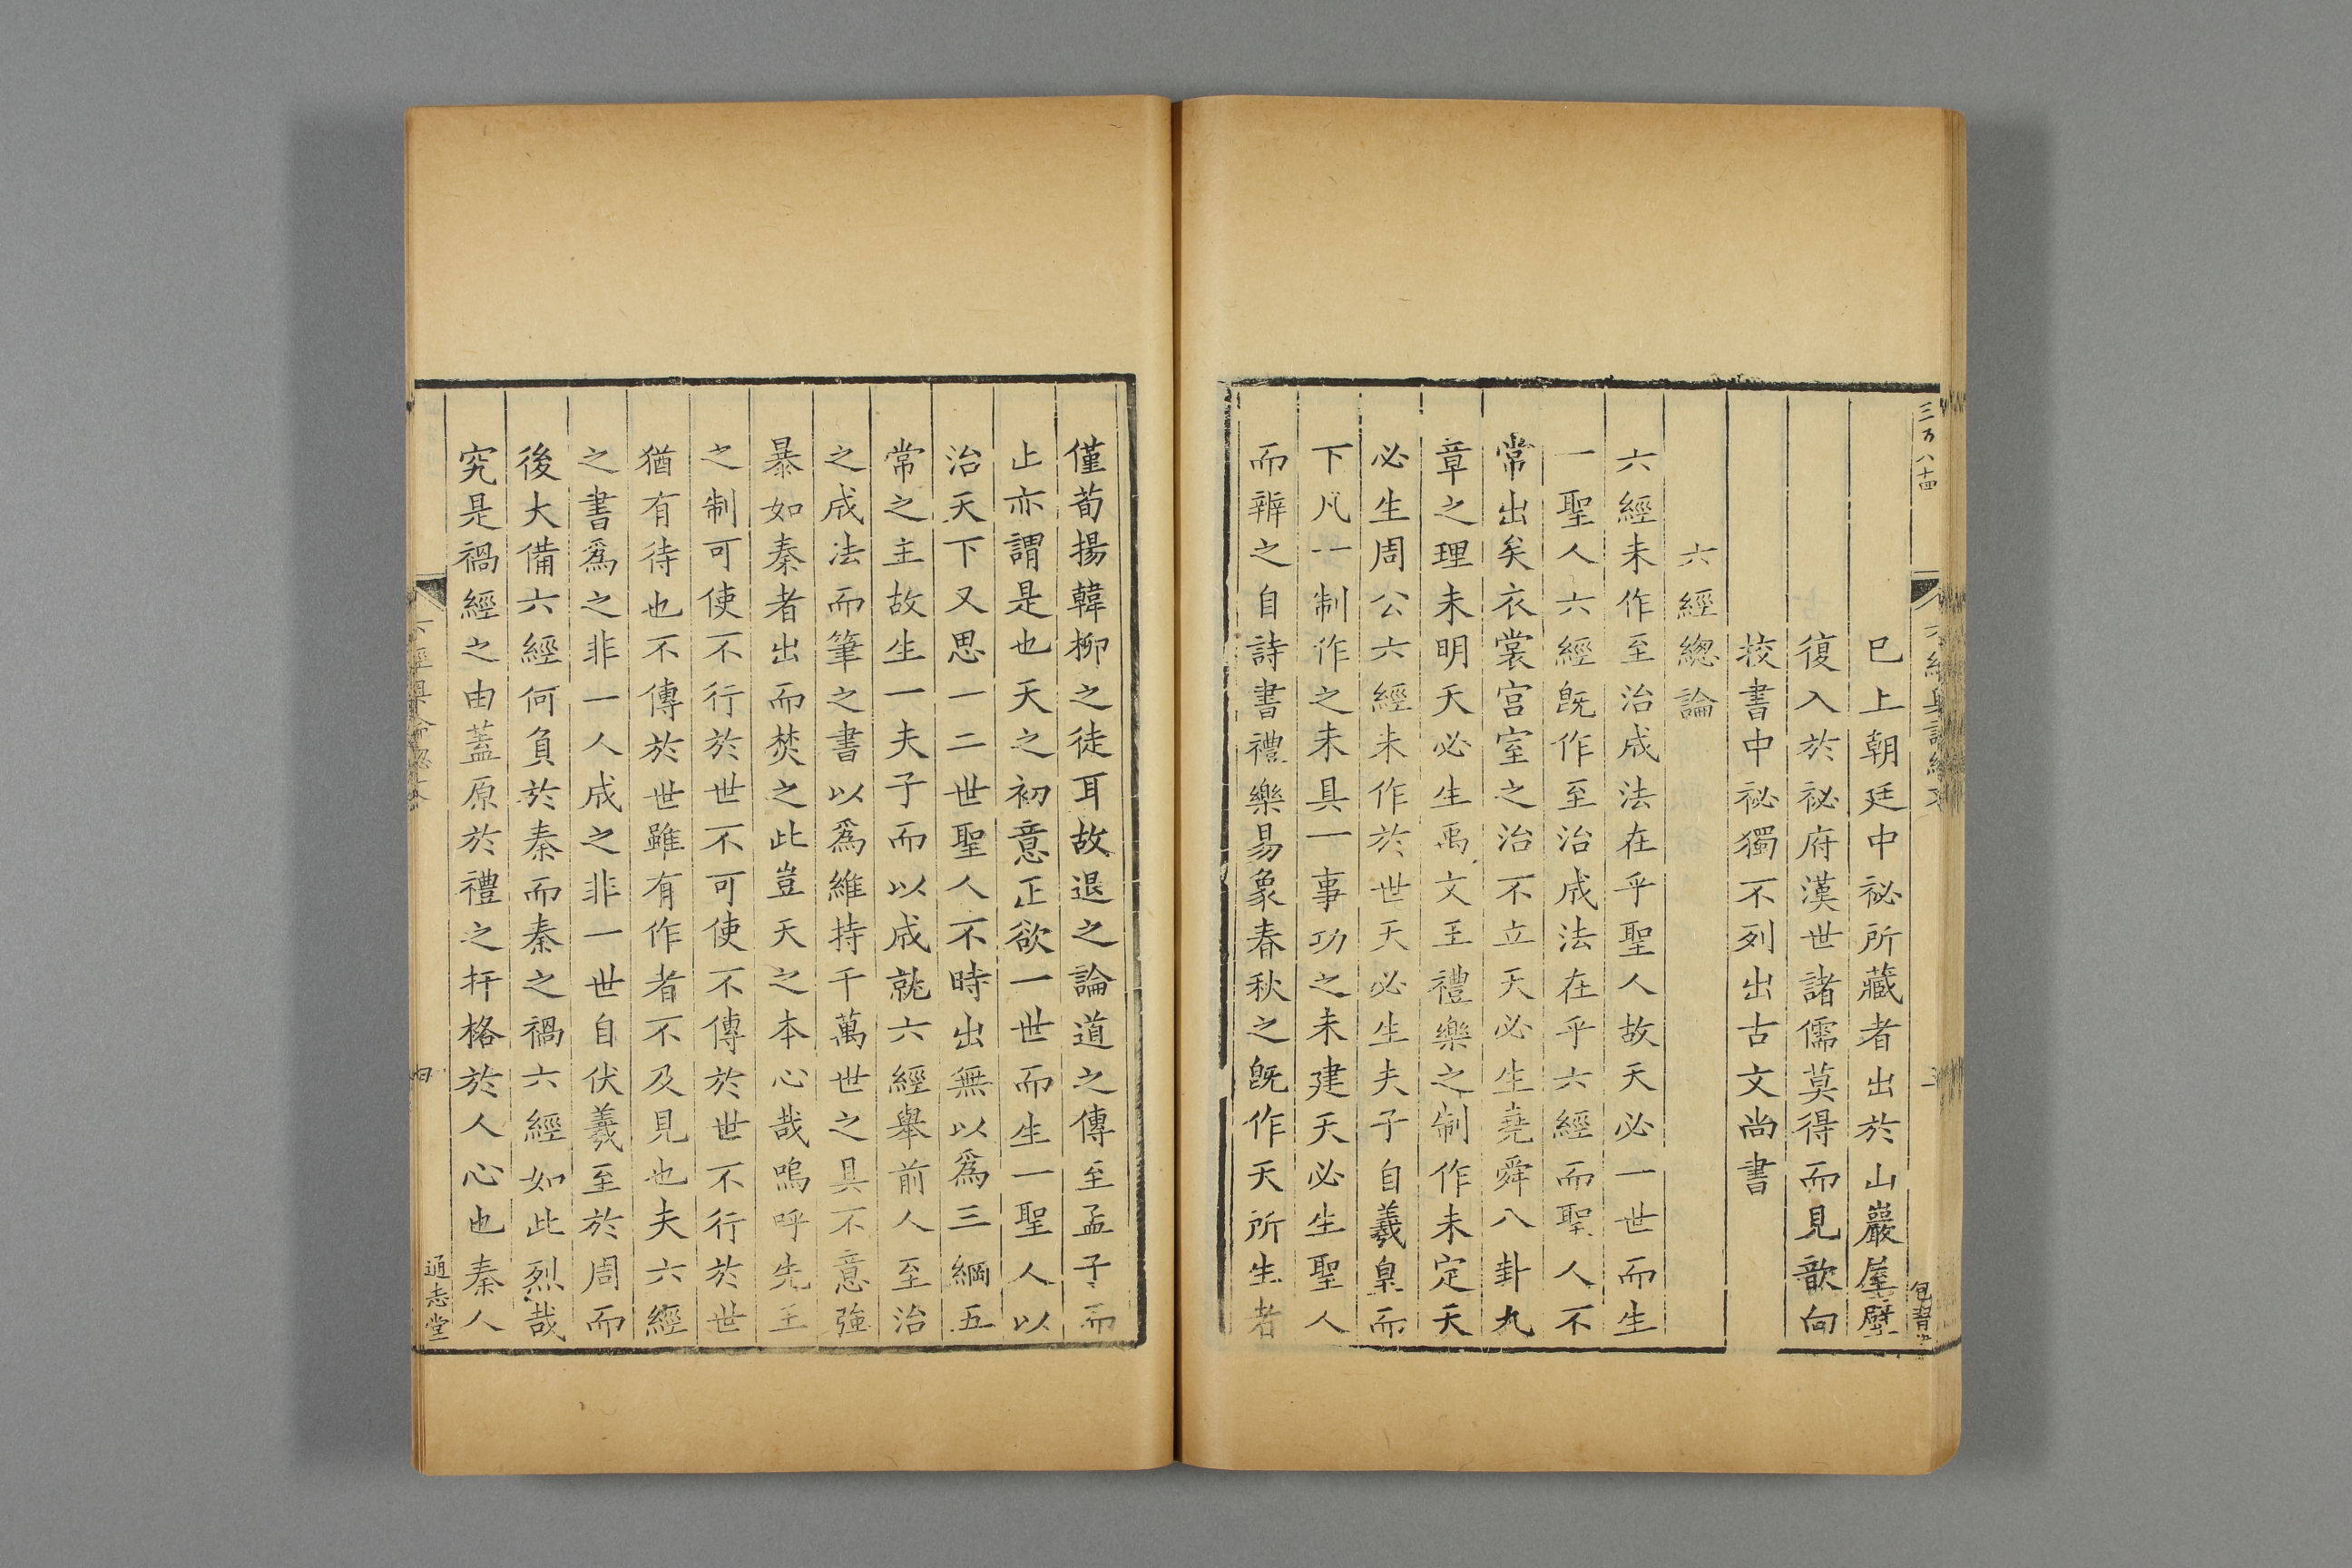 巳上朝廷中祕所藏者出於山巖屋壁
復入於祕府漢世諸儒莫得而見歆向
挍書中祕獨不列出古文尚書
六經總論
六經未作至治成法在乎聖人故天必一世而生
一聖人六經旣作至治成法在乎六經而聖人不
常出矣衣裳宮室之治不立天必生堯舜八卦九
章之理未明天必生禹文王禮樂之制作未定天
必生周公六經未作於世天必生夫子自羲皇而
下凡一制作之未具一事功之未建天必生聖人
而辨之自詩書禮樂易象春秋之旣作天所生者
僅荀揚韓柳之徒耳故退之論道之傳至孟子而
止亦謂是也天之初意正欲一世而生一聖人以
治天下又思一二世聖人不時出無以爲三綱五
常之主故生一夫子而以成就六經舉前人至治
之成法而筆之書以爲維持千萬世之具不意強
暴如秦者出而焚之此豈天之本心哉嗚呼先王
之制可使不行於世不可使不傳於世不行於世
猶有待也不傳於世雖有作者不及見也夫六經
之書爲之非一人成之非一世自伏羲至於周而
後大備六經何負於秦而秦之禍六經如此烈哉
究是禍經之由蓋原於禮之扞格於人心也秦人
通志堂